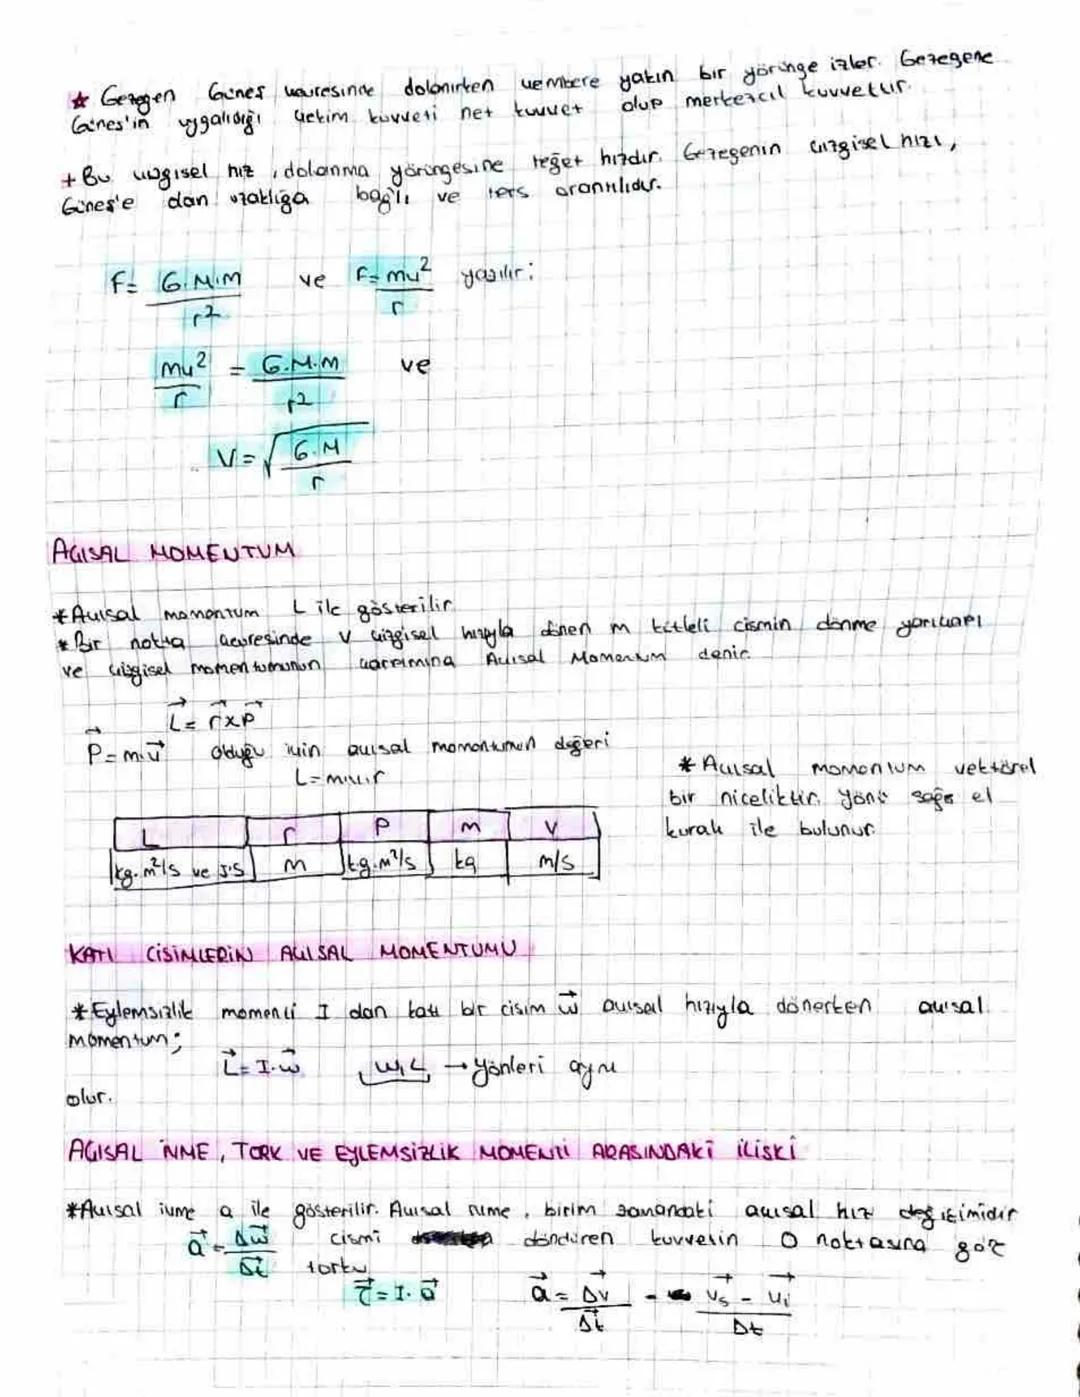 ★ Gezegen Güneş çevresinde dolanırken çembere yakın bir yörünge izler. Gezegene
Güneş'in uygalıdığı çekim kuvveti net kuvvet olup merkezcil kuvvettir.
+ Bu çizgisel hız, dolanma yörüngesine teğet hızdır. Gezegenin çizgisel hızı,
Güneş'e olan uzaklığa bağlı ve ters orantılıdır.
F= G.M.m / r² ve F= mv² / r yazılır;
mv² / r = G.M.m / r² ve
V= √ G.M / r
AÇISAL MOMENTUM
* Açısal momentum L ile gösterilir.
* Bir nokta çevresinde v çizgisel hızıyla dönen m kütleli cismin dönme yarıçapı
ve çizgisel momentumunun çarpımına Açısal Momentum denir.
L⃗ = r⃗xP⃗
P⃗=m.v⃗ olduğu için açısal momentumun değeri
L=m.v.r
* Açısal momentum vektörel
bir niceliktir. Yönü sağ el
kuralı ile bulunur.
L r P m V
kg.m²/s ve J.S m kg.m²/s kg m/s
KATI CİSİMLERİN AÇISAL MOMENTUMU
* Eylemsizlik momenti I olan katı bir cisim w⃗ açısal hızıyla dönerken açısal
momentum;
L⃗= I.w⃗ w,L → yönleri aynı
olur.
AÇISAL İVME, TORK VE EYLEMSİZLİK MOMENTİ ARASINDAKİ İLİŞKİ
* Açısal ivme a ile gösterilir. Açısal ivme, birim zamandaki açısal hız değişimidir
a⃗ = Δw⃗ / Δt⃗ cismi döndüren kuvvetin O noktasına göre
torku
τ⃗=I.a⃗ a⃗= Δv⃗ / Δt⃗ = v⃗s - v⃗i / Δt